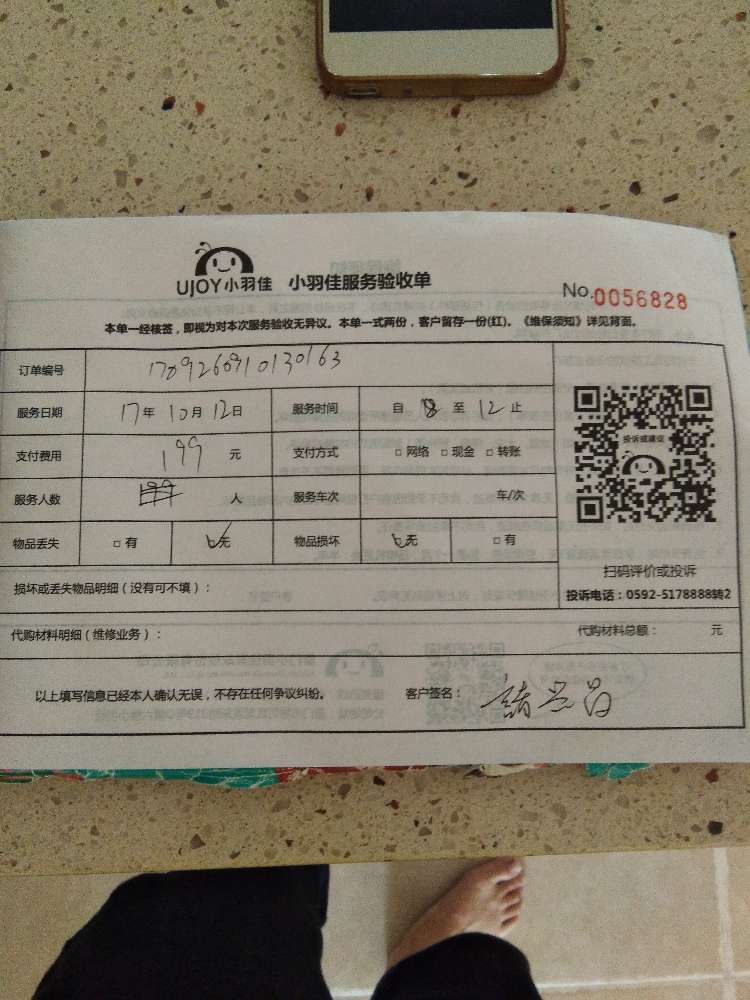 UJOY小羽佳 小羽佳服务验收单
No.0056828
本单一经核签，即视为对本次服务验收无异议。本单一式两份，客户留存一份(红)。《维保须知》详见背面。
订单编号 1709260910130163
服务日期 17年 10月 12日 服务时间 自 8 至 12 止
投诉或建议
支付费用 199 元 支付方式 □ 网络 □ 现金 □ 转账
服务人数 人 服务车次 车/次
物品丢失 □ 有 □ 无 物品损坏 □ 无 □ 有
扫码评价或投诉
损坏或丢失物品明细（没有可不填）：
投诉电话：0592-5178888转2
代购材料明细（维修业务）： 代购材料总额： 元
以上填写信息已经本人确认无误，不存在任何争议纠纷。 客户签名：